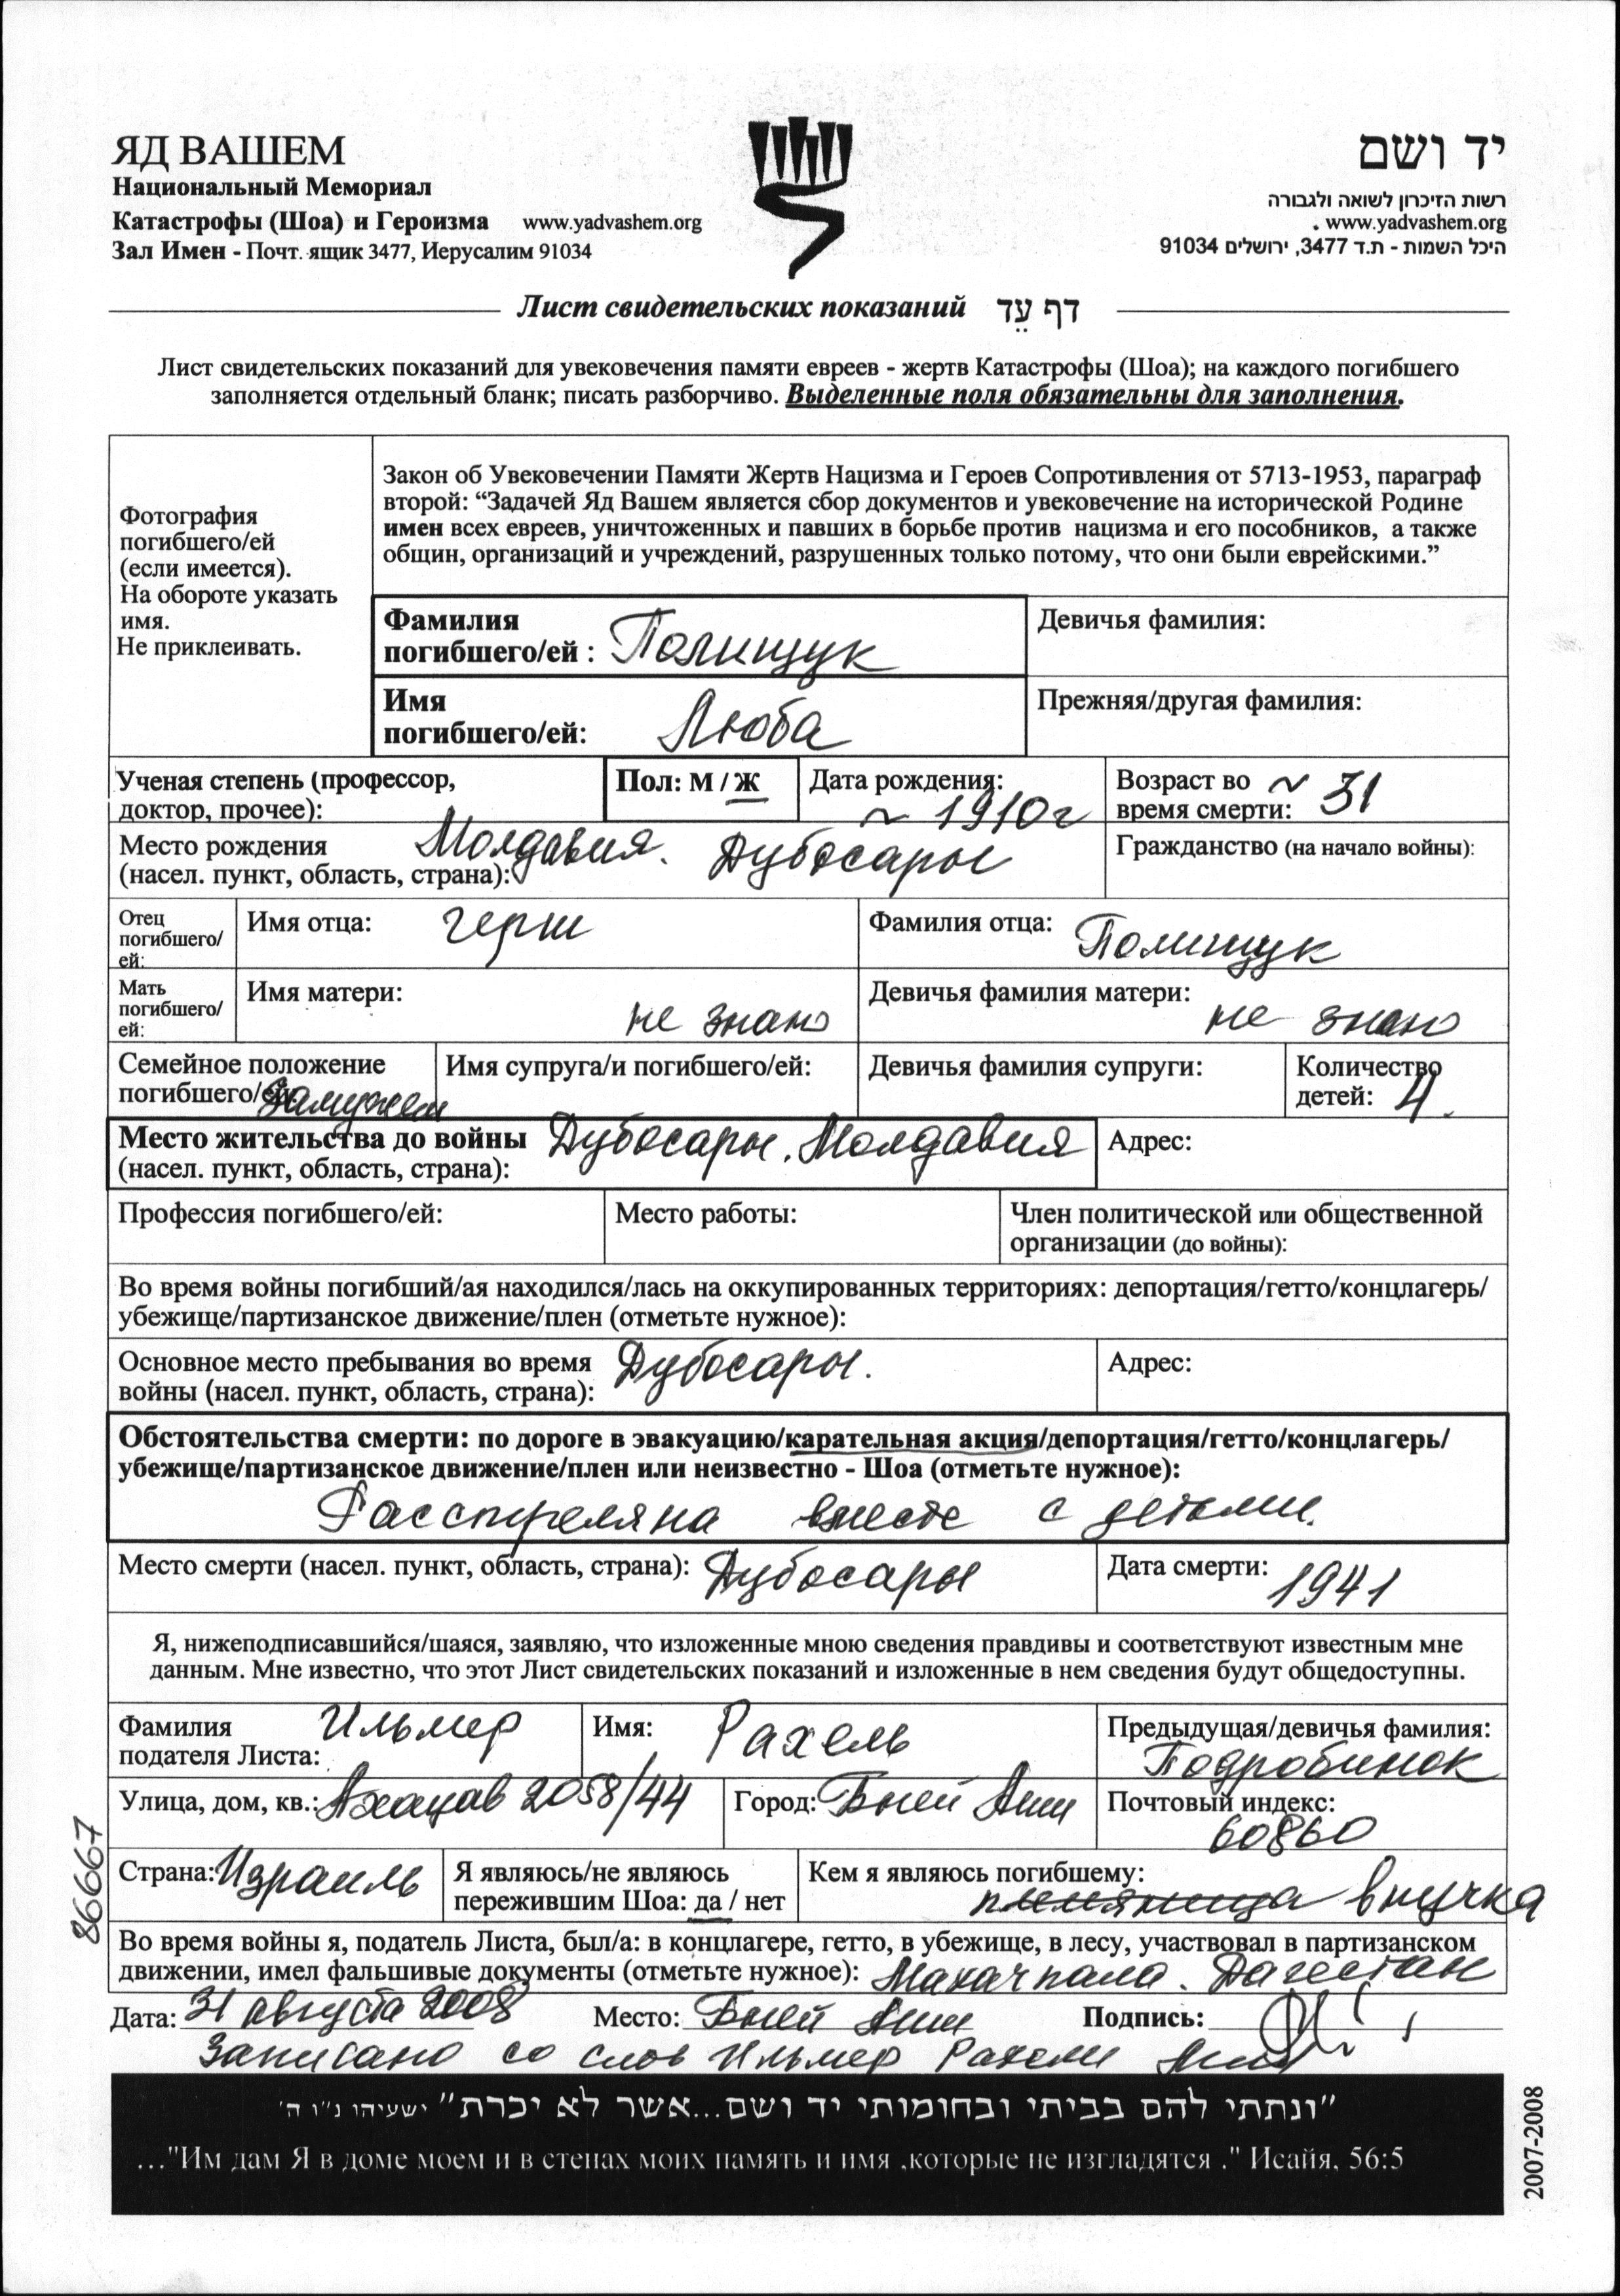 ЯД ВАШЕМ
Национальный Мемориал
Катастрофы (Шоа) и Героизма www.yadvashem.org
Зал Имен - Почт. ящик 3477, Иерусалим 91034
יד ושם
רשות הזיכרון לשואה ולגבורה
www.yadvashem.org
היכל השמות - ת.ד 3477, ירושלים 91034
Лист свидетельских показаний דף עֵד
Лист свидетельских показаний для увековечения памяти евреев - жертв Катастрофы (Шоа); на каждого погибшего
заполняется отдельный бланк; писать разборчиво. Выделенные поля обязательны для заполнения.
Фотография
погибшего/ей
(если имеется).
На обороте указать
имя.
Не приклеивать.
Закон об Увековечении Памяти Жертв Нацизма и Героев Сопротивления от 5713-1953, параграф
второй: “Задачей Яд Вашем является сбор документов и увековечение на исторической Родине
имен всех евреев, уничтоженных и павших в борьбе против нацизма и его пособников, а также
общин, организаций и учреждений, разрушенных только потому, что они были еврейскими.”
Фамилия
погибшего/ей : Полищук
Девичья фамилия:
Имя
погибшего/ей: Люба
Прежняя/другая фамилия:
Ученая степень (профессор,
доктор, прочее):
Пол: М / Ж
Дата рождения:
~ 1910г
Возраст во
время смерти: ~ 31
Место рождения Молдавия. Дубосары
(насел. пункт, область, страна):
Гражданство (на начало войны):
Отец
погибшего/
ей:
Имя отца: Герш
Фамилия отца: Полищук
Мать
погибшего/
ей:
Имя матери: не знаю
Девичья фамилия матери: не знаю
Семейное положение
погибшего/ей: Замужем
Имя супруга/и погибшего/ей:
Девичья фамилия супруги:
Количество
детей: 4.
Место жительства до войны Дубосары. Молдавия
(насел. пункт, область, страна):
Адрес:
Профессия погибшего/ей:
Место работы:
Член политической или общественной
организации (до войны):
Во время войны погибший/ая находился/лась на оккупированных территориях: депортация/гетто/концлагерь/
убежище/партизанское движение/плен (отметьте нужное):
Основное место пребывания во время Дубосары.
войны (насел. пункт, область, страна):
Адрес:
Обстоятельства смерти: по дороге в эвакуацию/карательная акция/депортация/гетто/концлагерь/
убежище/партизанское движение/плен или неизвестно - Шоа (отметьте нужное):
Расстреляна вместе с детьми.
Место смерти (насел. пункт, область, страна): Дубосары
Дата смерти: 1941
Я, нижеподписавшийся/шаяся, заявляю, что изложенные мною сведения правдивы и соответствуют известным мне
данным. Мне известно, что этот Лист свидетельских показаний и изложенные в нем сведения будут общедоступны.
Фамилия Ильмер
подателя Листа:
Имя: Рахель
Предыдущая/девичья фамилия:
Подробинок
Улица, дом, кв.: Ахацав 2058/44
Город: Бней Аиш
Почтовый индекс:
60860
Страна: Израиль
Я являюсь/не являюсь
пережившим Шоа: да / нет
Кем я являюсь погибшему:
племяница внучка
Во время войны я, податель Листа, был/а: в концлагере, гетто, в убежище, в лесу, участвовал в партизанском
движении, имел фальшивые документы (отметьте нужное): Махачкала. Дагестан
Дата: 31 августа 2008 Место: Бней Аиш Подпись:
Записано со слов Ильмер Рахели
"ונתתי להם בביתי ובחומותי יד ושם...אשר לא יכרת" ישעיהו נ"ו ה'
..."Им дам Я в доме моем и в стенах моих память и имя ,которые не изгладятся ." Исайя, 56:5
86667
2007-2008